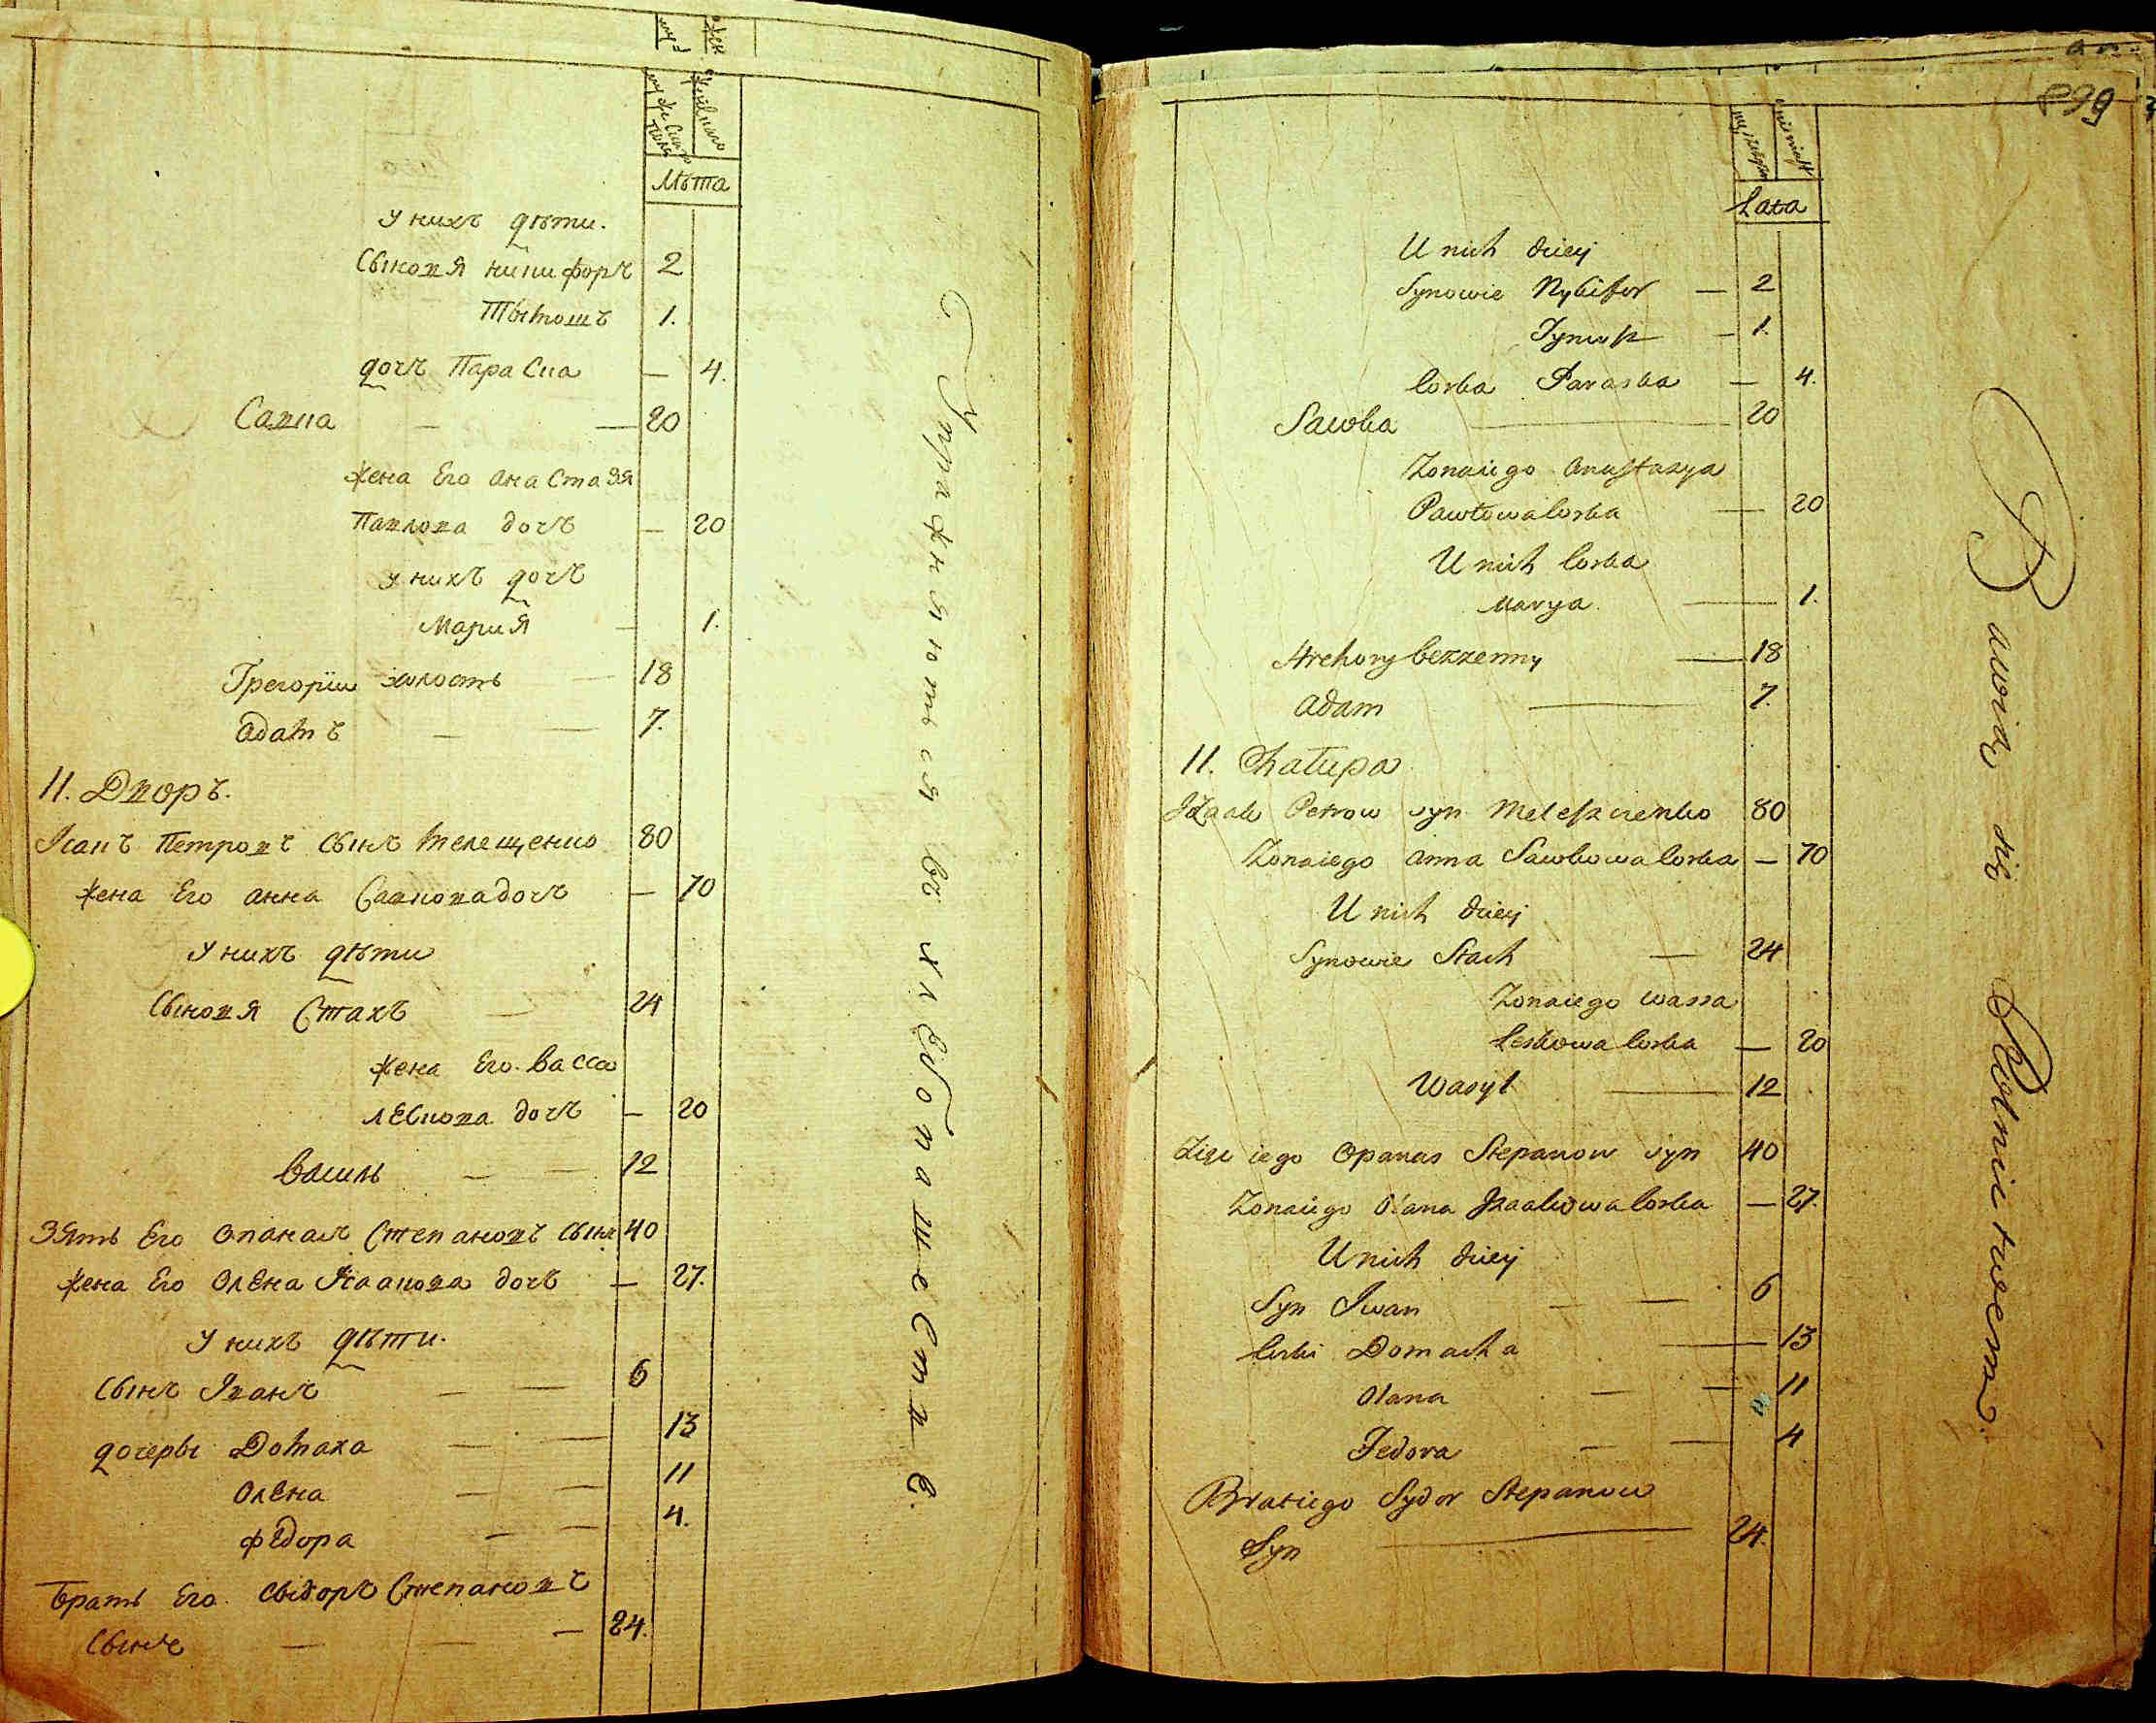 Лѣта
у нихъ дѣти.
Сыновя никифоръ 2
Тымошъ 1.
дочь Параска — 4.
Савка — — 20
жена Его анастазя
Павлова дочь — 20
у нихъ дочь
Мария — 1.
Грегорїи холостъ — 18
адамъ — — 7.
11. Дворъ.
Ісакъ Петровъ сынъ мелещенко 80
жена Его анна Савкова дочь — 70
у нихъ дѣти
Сыновя Стахъ — 24
жена Его васса
лескова дочь — 20
василь — — 12
Зять Его опанасъ Степановъ сынъ 40
жена Его олена Ісаакова дочь — 27.
у нихъ дѣти.
Сынъ Іванъ — — 6
дочеры Домаха — — 13
олена — — 11
федора — — 4.
Братъ Его сыдоръ Степановъ
Сынъ — — — 24.
Упражняются въ хлебопашестве.
299
Lata
U nich dzieci
Synowie Nykifor — 2
Tymosz — 1.
Corka Paraska — 4.
Sawka — 20
Zona iego anastazya
Pawłowa Corka — 20
U nich Corka
Marya — 1.
Hrehory bezzenny — 18
adam — 7.
11. Chałupa
Izaak Petrow syn Meleszczenko 80
Zona iego anna Sawkowa Corka — 70
U nich dzieci
Synowie Stach — 24
Zona iego wassa
Leskowa Corka — 20
Wasyl — 12
Zięc iego Opanas Stepanow syn 40
Zona iego Olana Izaakowa Corka — 27.
U nich dzieci
Syn Iwan — — 6
Corki Domacha — 13
Olana — — 11
Fedora — — 4
Brat iego Sydor Stepanow
Syn — 24.
Bawią się Rolnictwem.